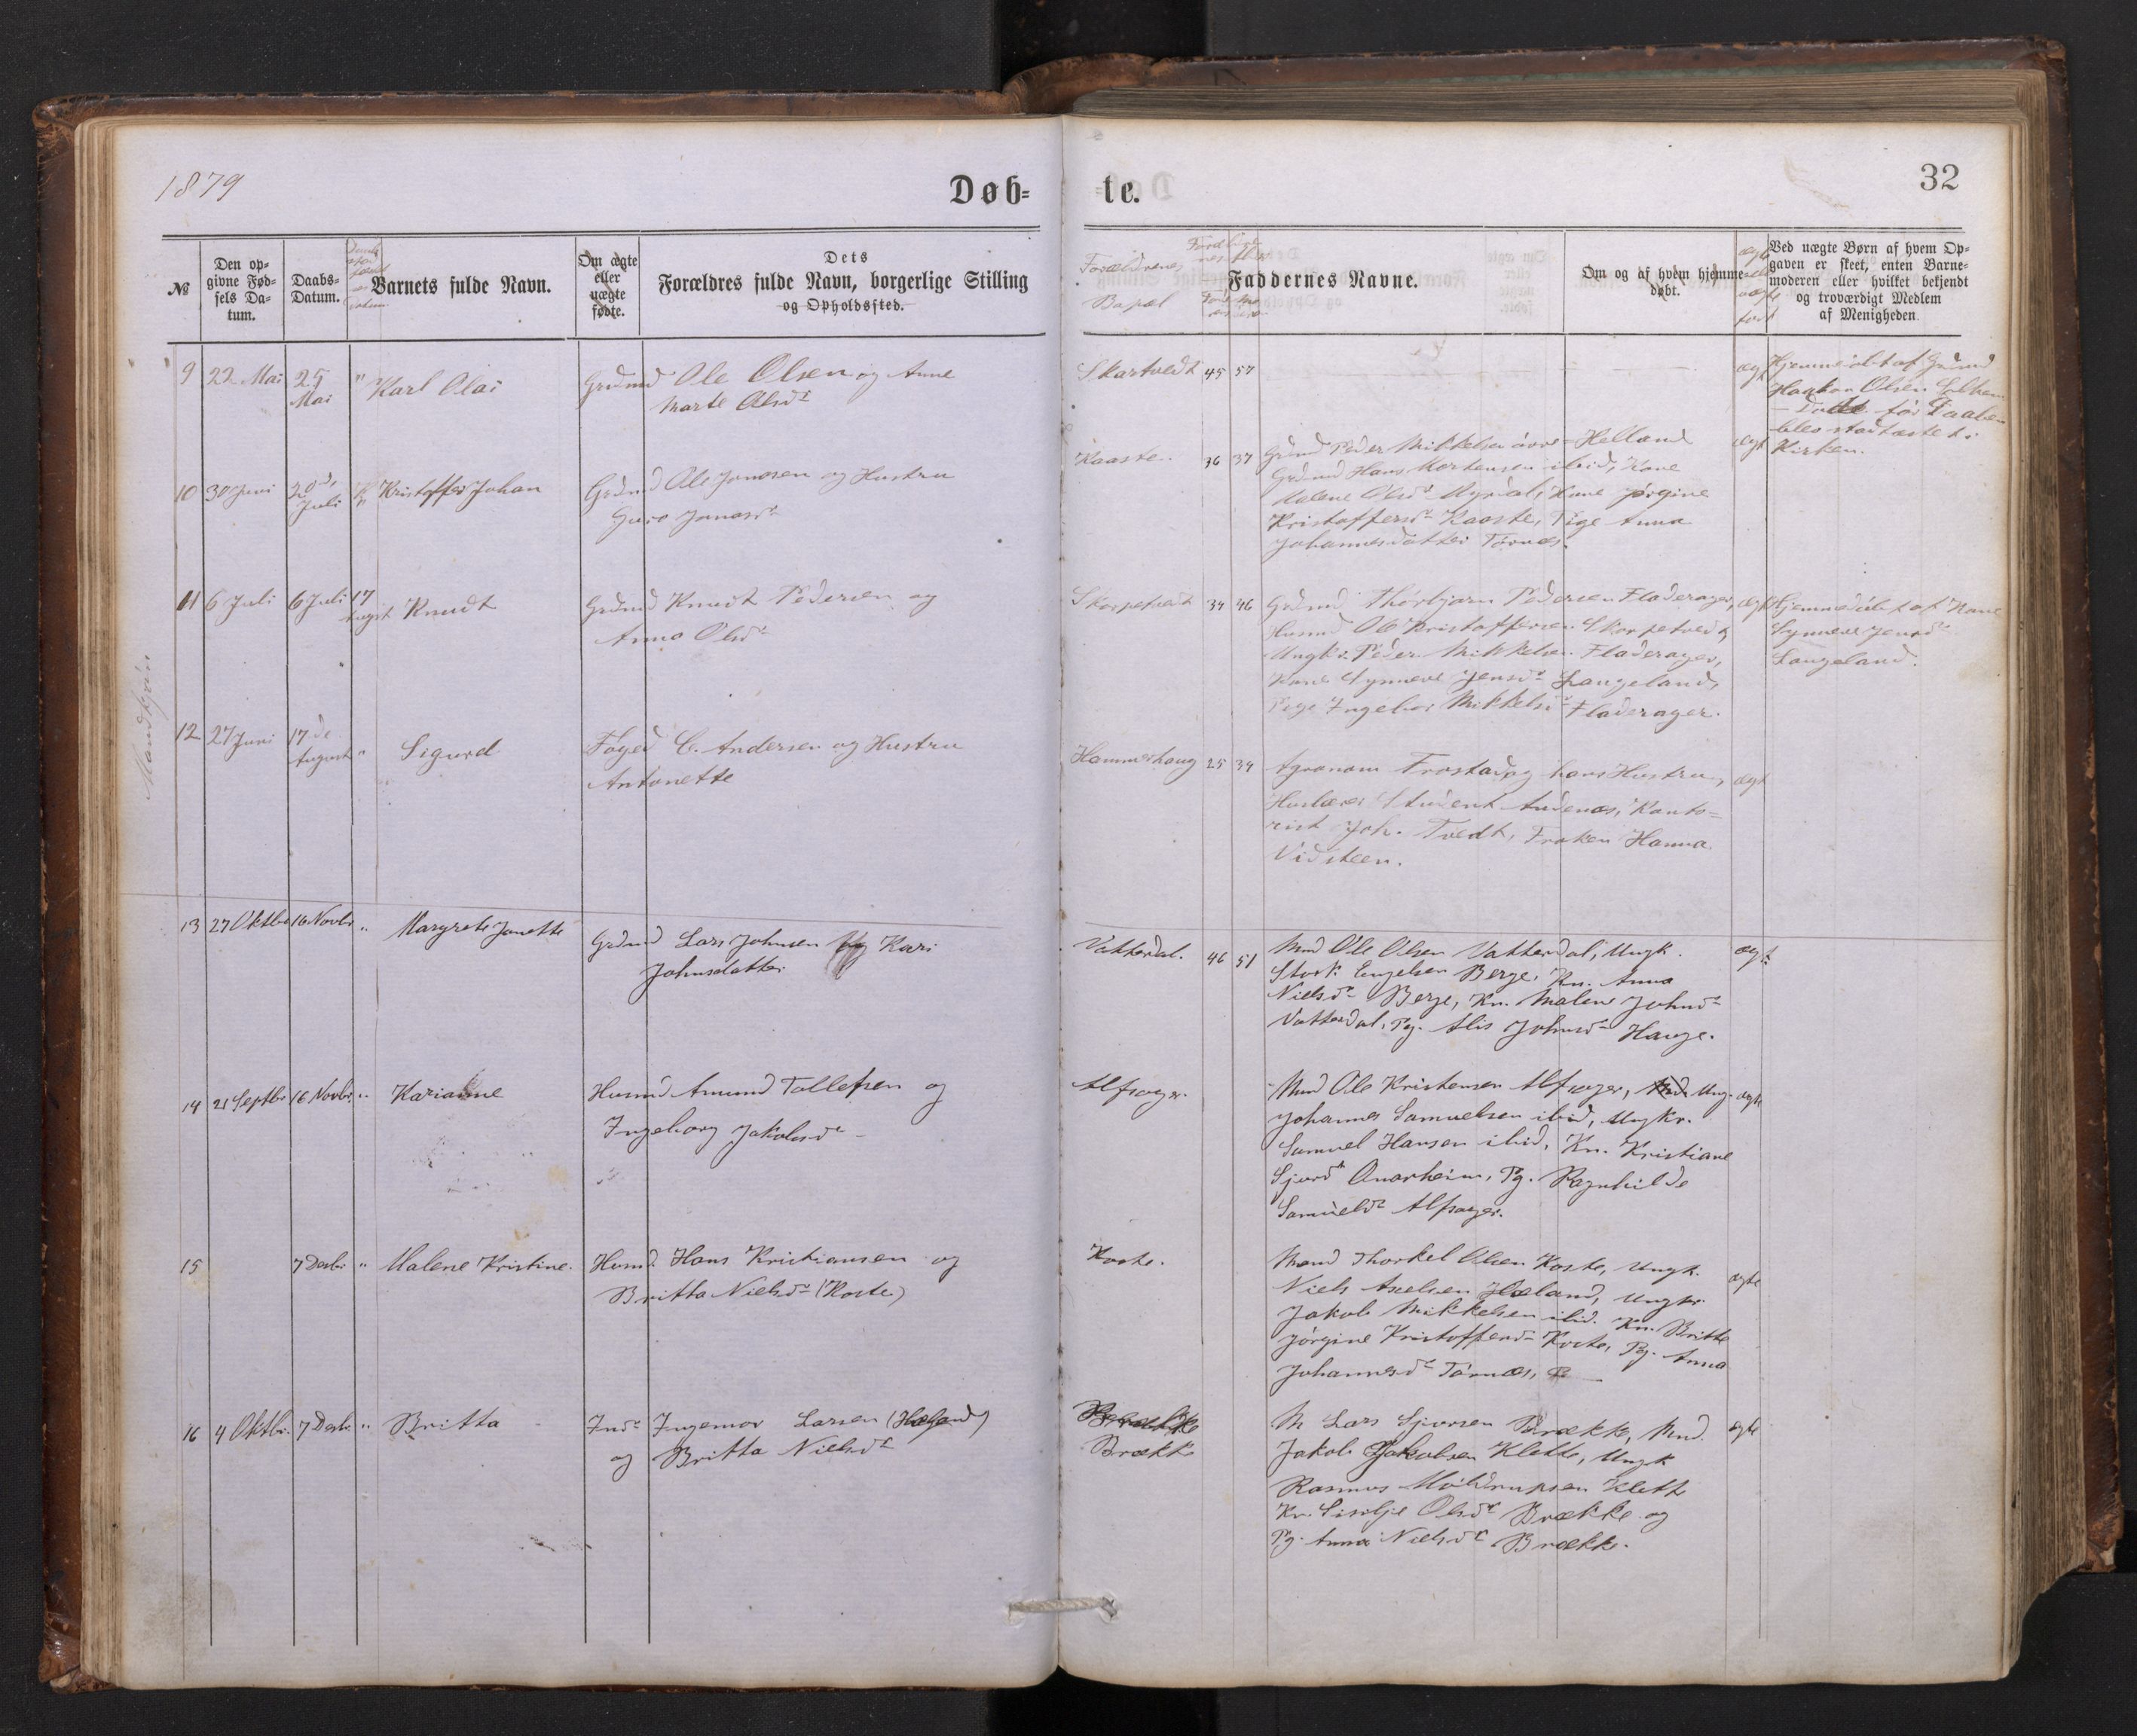 1879
Døb-
te.
32
№
Den op-
givne Fød-
sels Da-
tum.
Daabs-
Datum.
Barnets fulde Navn.
Om ægte
eller
uægte
fødte.
Dets
Forældres fulde Navn, borgerlige Stilling
og Opholdssted.
Forældrenes
Bopæl
Faddernes Navne.
Om og af hvem hjemme-
døbt.
Ved uægte Børn af hvem Op-
gaven er skeet, enten Barne-
moderen eller hvilket bekjendt
og troværdigt Medlem
af Menigheden.
Mandkjön
9 22 Mai 25 Mai " Karl Olai
Grdmd Ole Olsen og Anne
Marte Olsdr
Skartvedt 45 57
ægt
Hjemmedöbt af Grdmd
Haakon Olsen
for Daaben
blev stadfæstet i
Kirken.
10 30 Juni 20de Juli " Kristoffer Johan
Grdmd Ole Jonasen og Hustru
Guro Jonasdr
Kaaste. 36 37
Grdmd Peder Mikkelsen övre-Helland
Grdmd Hans Mortensen ibid, Kone
Malene Olsdr Myrdal, Kone Jörgine
Kristoffersdr Kaaste, Pige Anna
Johannesdatter Tornæs.
ægt
11 6 Juli 6 Juli 17 August Knudt
Grdmd Knudt Pedersen og
Anna Olsdr
Skorpetvedt 34 46
Grdmd Thorbjørn Pedersen Fladerager,
Husmd Ole Kristoffersen Skorpetvedt,
Ungkr Peder Mikkelsen Fladerager,
Kone Synneve Jensdr Langeland,
Pige Ingebor Mikkelsdr Fladerager.
ægt
Hjemmedöbt af Kone
Synneve Jensdr
Langeland.
12 27 Juni 17de August " Sigurd
Foged C. Andersen og Hustru
Antonette
Hammerhaug 25 34
Agronom Frostad og hans Hustru,
Huslærer Student Audenæs, Konto-
rist Joh. Tvedt, Frøken Hanna
Vidsteen.
ægt
13 27 Oktbr 16 Novbr " Margrete Janette
Grdmd Lars Johnsen og Kari
Johnsdatter
Vatterdal. 46 51
Mnd Ole Olsen Vatterdal, Ungk.
Engelsen Berge, Kn. Anna
Nielsdr Berge, Kn. Malene Johnsdr
Vatterdal, Pg. Alis Johnsdr Hauge.
ægt
14 21 Septbr 16 Novbr. " Karianne
Husmd Amund Tollefsen og
Ingeborg Jakobsdr
Alfsager.
Mnd Ole Kristensen Alfsager, Ung.
Johannes Samuelsen ibid, Ungkr.
Samuel Hansen ibid, Kn. Kristiane
Sjursdr Onarheim, Pg. Ragnhilde
Samuelsdr Alfsager.
ægte
15 7 Decbr " Malene Kristine.
Husmd. Hans Kristiansen og
Britta Nielsdr (Koste)
Koste.
Mand Thorkel Olsen Koste, Ungk.
Niels Axelsen Hæland, Ungkr.
Jakob Mikkelsen ibid. Kn. Britte
Jörgine Kristoffersdr Koste, Pg. Anna
Johannesdr Tornæs,
ægte
16 4 Oktbr. 7 Decbr. " Britta
Indr Ingemor Larsen (Hæland)
og Britta Nielsdr
Brække
M Lars Sjursen Brække, Mnd.
Jakob Jakobsen Klette, Ungk
Rasmus Klett
Kr. Sisilje Olsdr Brække og
Pg. Anna Nielsdr Brække.
ægte